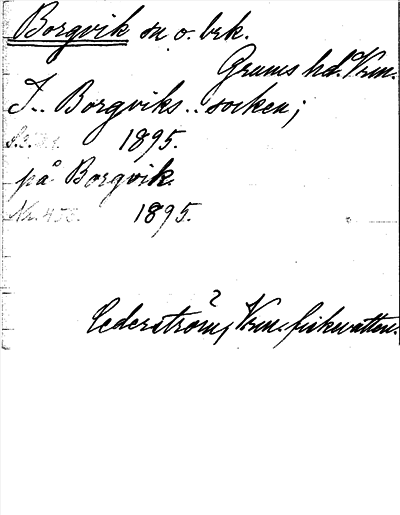 Borgvik sn o. brk.
Grums hd. Vrm.
I.. Borgviks.. socken;
1895.
på Borgvik.
1895.
?
Cederström, Vrm. fiskevatten.